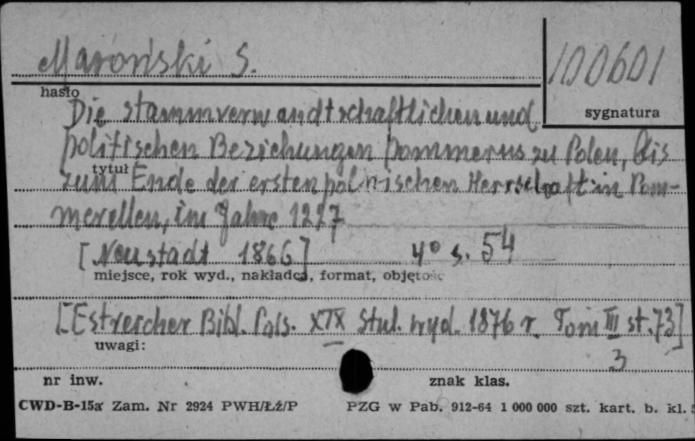 Maroński S.
100601
hasło
sygnatura
Die stammverwandtschaftlichen und
politischen Beziehungen Pommerns zu Polen, bis
tytuł
zum Ende der ersten polnischen Herrschaft in Pom-
merellen, im Jahre 1227
[Neustadt 1866] 4° s. 54
miejsce, rok wyd., nakładca, format, objętość
[Estreicher Bibl. Pols. XIX Stul. wyd. 1876 r. Tom III st. 73]
uwagi:
3
nr inw.
znak klas.
CWD-B-15a Zam. Nr 2924 PWH/Łź/P PZG w Pab. 912-64 1 000 000 szt. kart. b. kl.